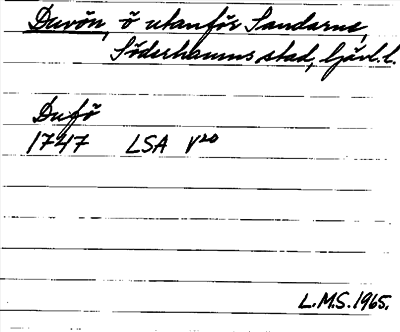 Duvön, ö utanför Sandarne,
Söderhamns stad, Gävl.l.
Dufö
1747 LSA V20
L.M.S. 1965.